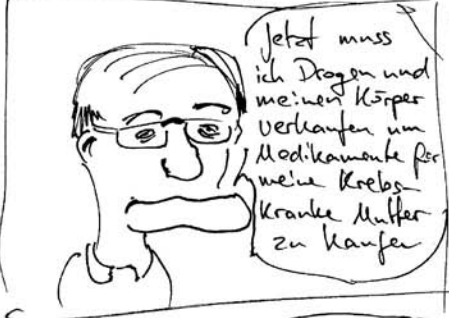 Jetzt muss
ich Drogen und
meinen Körper
verkaufen um
Medikamente für
meine Krebs-
kranke Mutter
zu kaufen